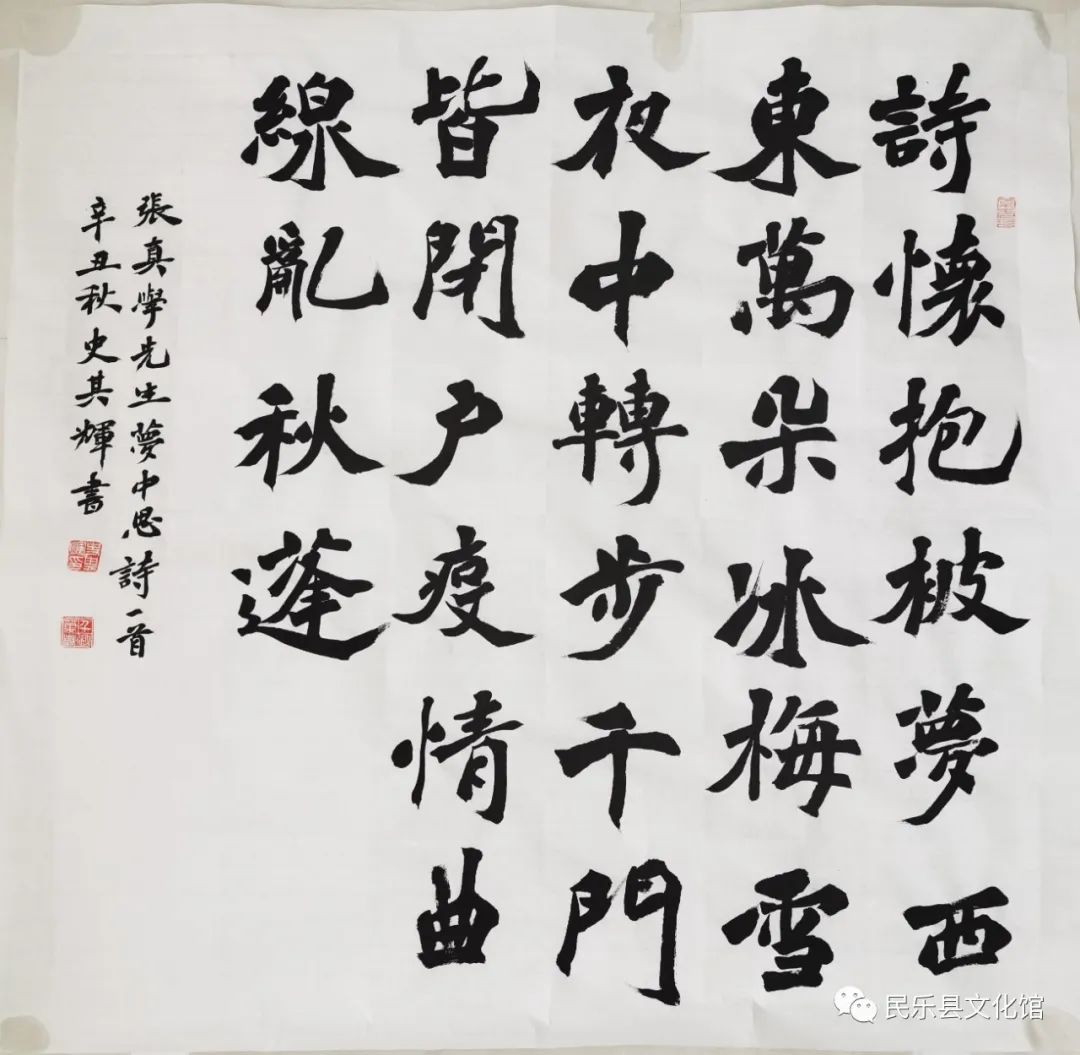 詩懷抱被夢西
東萬朵冰梅雪
夜中轉步千門
皆閉户疫情曲
線亂秋蓬
張真學先生夢中思詩一首
辛丑秋史其輝書
民乐县文化馆